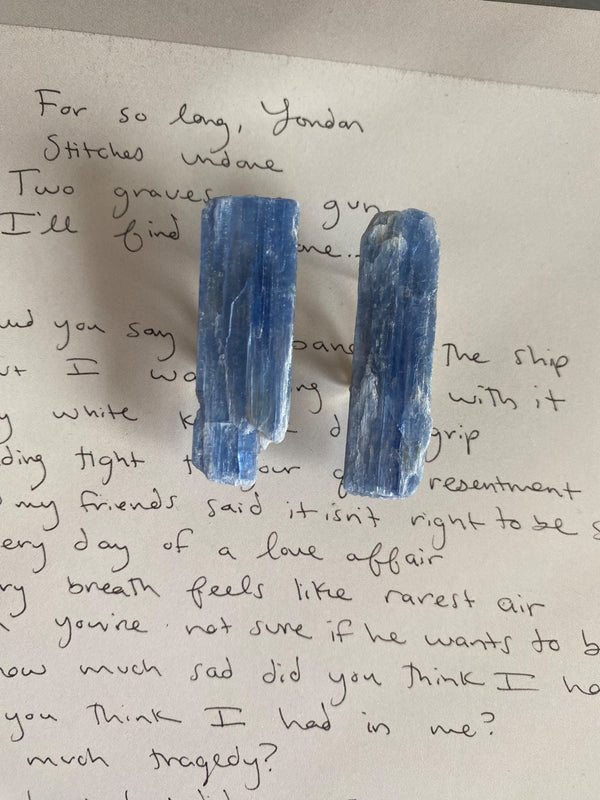 For so long, London
Stitches undone
Two graves gun
I'll find
you say the ship
I with it
white grip
tight resentment
my friends said it isn't right to be s
ery day of a love affair
ry breath feels like rarest air
you're not sure if he wants to b
how much sad did you think I ha
you think I had in me?
much tragedy?